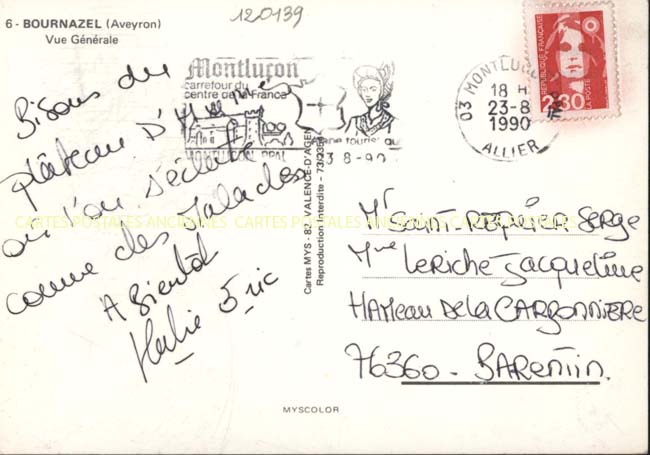 120139
6 - BOURNAZEL (Aveyron)
Vue Générale
Montluçon
carrefour du
centre de la France
MONTLUÇON PPAL
23-8-90
03 MONTLUÇ
18 H
23-8
1990
ALLIER
REPUBLIQUE FRANÇAISE
2,30
LA POSTE
Bisous du
plateau D'
ou l'on s'éclate
comme des malades
A Bientôt
Eric
Cartes MYS - 82 - VALENCE-D'AGEN
Reproduction Interdite - 73/2354
CARTES POSTALES ANCIENNES CARTES POSTALES ANCIENNES CARTES POSTALES ANCIENNES
Mr SAINT-REQUIER SERGE
Mme LERICHE Jacqueline
HAMEAU De la CARBONNIERE
76360 - BARENTIN.
MYSCOLOR